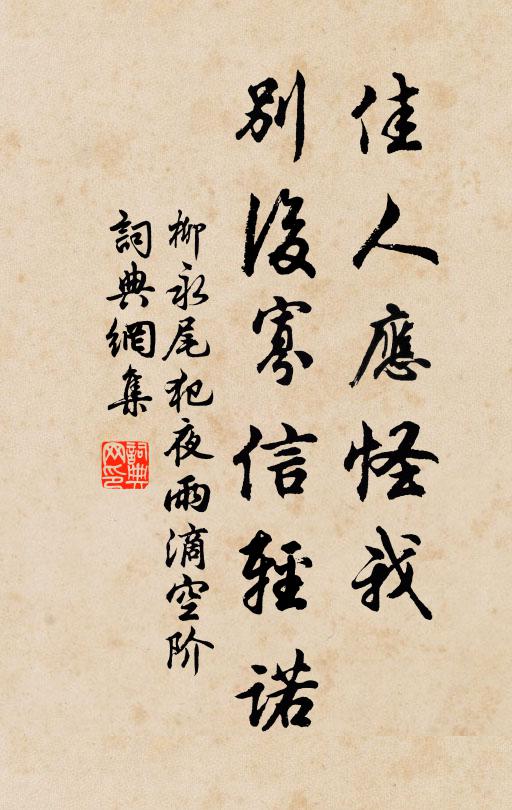 佳人應怪我
別後寡信輕諾
柳永尾犯夜雨滴空阶
詞典網集
詞典网印